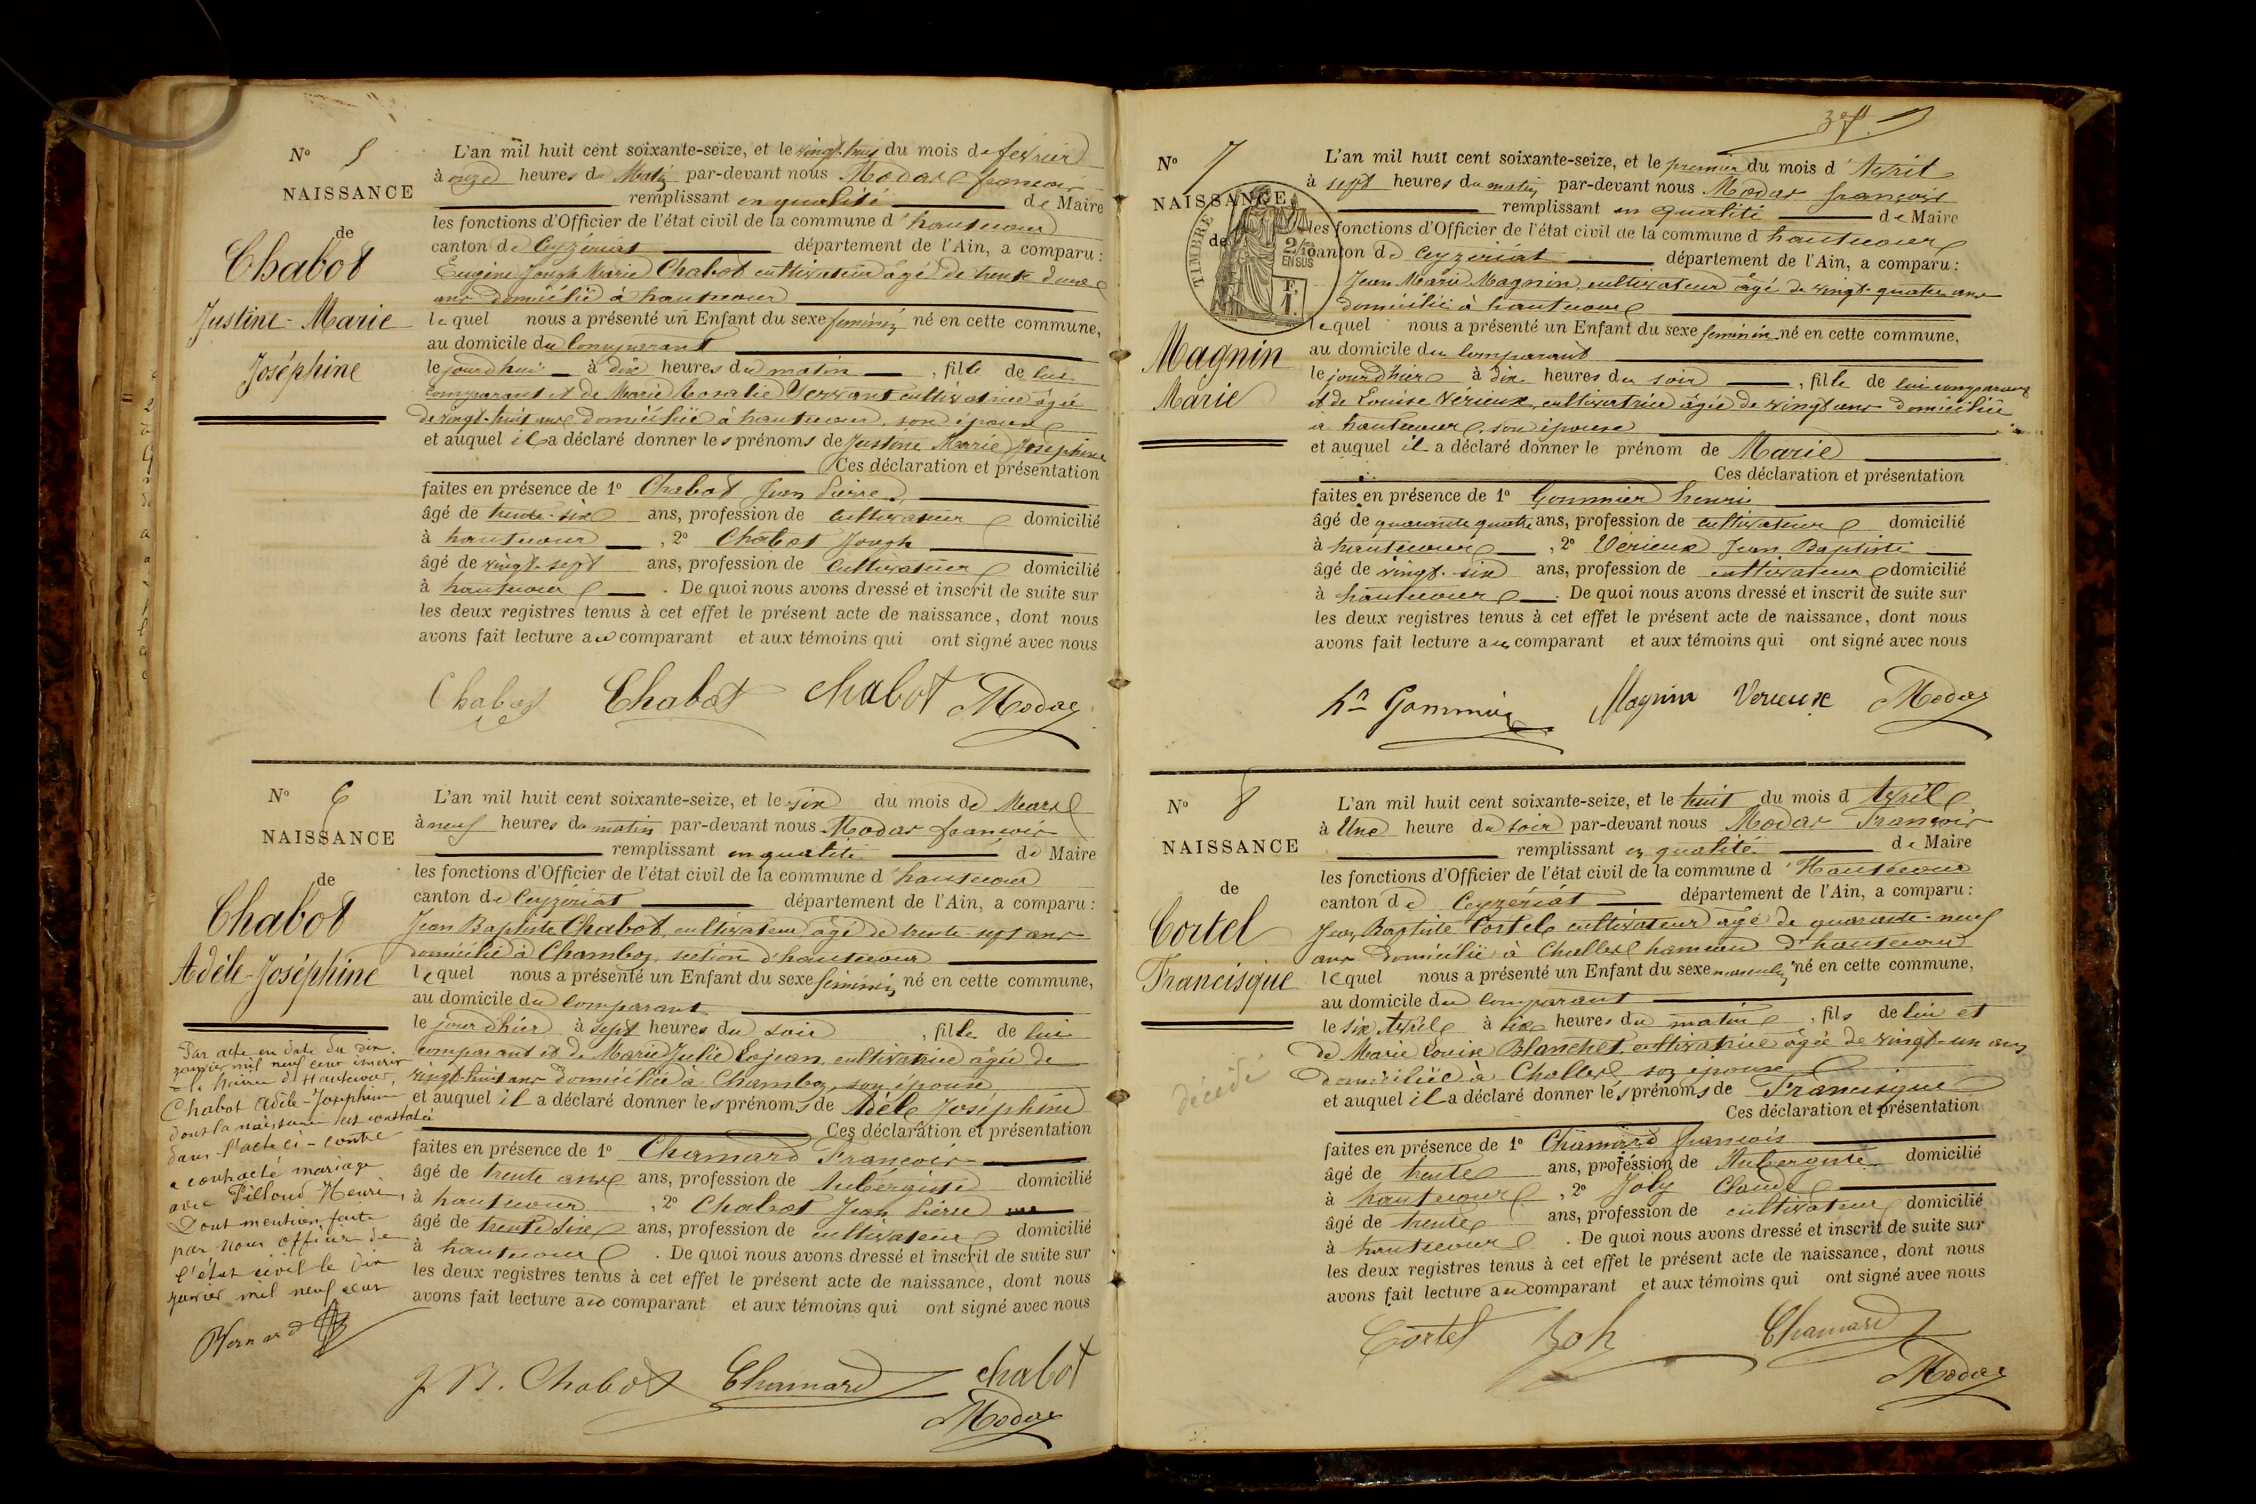 N° 5
NAISSANCE
de
Chabot
Justine-Marie
Joséphine
L'an mil huit cent soixante-seize, et le vingt-trois du mois de fevrier
à onze heures du Matin par-devant nous Modas francois
remplissant en qualité de Maire
les fonctions d'Officier de l'état civil de la commune d'hautecour
canton de Ceyzériat département de l'Ain, a comparu :
Eugène Joseph Marie Chabot cultivateur âgé de trente deux
ans domicilié à hautecour
lequel nous a présenté un Enfant du sexe feminin né en cette commune,
au domicile du Comparant
le jourdhui à dix heures du matin, fille de lui
comparant et de Marie Rosalie Servant cultivatrice âgée
de vingt-huit ans domiciliée à hautecour, son épouse
et auquel il a déclaré donner les prénoms de Justine Marie Joséphine
Ces déclaration et présentation
faites en présence de 1° Chabot Jean Pierre
âgé de trente-six ans, profession de cultivateur domicilié
à hautecour, 2° Chabot Joseph
âgé de vingt-sept ans, profession de Cultivateur domicilié
à hautecour. De quoi nous avons dressé et inscrit de suite sur
les deux registres tenus à cet effet le présent acte de naissance, dont nous
avons fait lecture au comparant et aux témoins qui ont signé avec nous
Chabot Chabot chabot Modas
N° 6
NAISSANCE
de
Chabot
Adèle-Joséphine
Par acte en date du dix
janvier mil neuf cent inscrit
à la mairie d'Hautecour,
Chabot Adèle-Joséphine
dont la naissance est constatée
dans l'acte ci-contre
a contracté mariage
avec Pilloud Henri,
Dont mention faite
par nous officier de
l'état civil le dix
janvier mil neuf cent
Bernard
L'an mil huit cent soixante-seize, et le six du mois de Mars
à neuf heures du matin par-devant nous Modas francois
remplissant en qualité de Maire
les fonctions d'Officier de l'état civil de la commune d'hautecour
canton de Ceyzériat département de l'Ain, a comparu :
Jean Baptiste Chabot, cultivateur âgé de trente sept ans
domicilié à Chambod, section d'hautecour
lequel nous a présenté un Enfant du sexe féminin né en cette commune,
au domicile du Comparant
le jour d'hier à sept heures du soir, fille de lui
comparant et de Marie Julie Lojean, cultivatrice âgée de
vingt-huit ans domiciliée à Chambod, son épouse
et auquel il a déclaré donner les prénoms de Adèle Joséphine
Ces déclaration et présentation
faites en présence de 1° Chamard Francois
âgé de trente ans, profession de Aubergiste domicilié
à hautecour, 2° Chabot Jean Pierre
âgé de trente six ans, profession de cultivateur domicilié
à hautecour. De quoi nous avons dressé et inscrit de suite sur
les deux registres tenus à cet effet le présent acte de naissance, dont nous
avons fait lecture au comparant et aux témoins qui ont signé avec nous
J B. Chabot Chamard chabot
Modas
3e f.
N° 7
NAISSANCE
de
TIMBRE
2/10
EN SUS
F.
1.
Magnin
Marie
L'an mil huit cent soixante-seize, et le premier du mois d'Avril
à sept heures du matin par-devant nous Modas françois
remplissant en qualité de Maire
les fonctions d'Officier de l'état civil de la commune d hautecour
canton de Ceyzériat département de l'Ain, a comparu :
Jean Marie Magnin, cultivateur âgé de vingt-quatre ans
domicilié à hautecour
lequel nous a présenté un Enfant du sexe feminin né en cette commune,
au domicile du comparant
le jour d'hier à dix heures du soir, fille de lui comparant
et de Louise Vérieux, cultivatrice âgée de vingt ans domiciliée
à hautecour, son épouse
et auquel il a déclaré donner le prénom de Marie
Ces déclaration et présentation
faites en présence de 1° Gommier henri
âgé de quarante quatre ans, profession de cultivateur domicilié
à hautecour, 2° Vérieux Jean Baptiste
âgé de vingt-six ans, profession de cultivateur domicilié
à hautecour. De quoi nous avons dressé et inscrit de suite sur
les deux registres tenus à cet effet le présent acte de naissance, dont nous
avons fait lecture au comparant et aux témoins qui ont signé avec nous
hri Gommier Magnin Verieux Modas
N° 8
NAISSANCE
de
Cortel
Francisque
décédé
L'an mil huit cent soixante-seize, et le huit du mois d Avril
à Une heure du soir par-devant nous Modas Francois
remplissant en qualité de Maire
les fonctions d'Officier de l'état civil de la commune d'Hautecour
canton de Ceyzériat département de l'Ain, a comparu :
Jean Baptiste Cortel cultivateur âgé de quarante-neuf
ans domicilié à Challes hameau d'hautecour
lequel nous a présenté un Enfant du sexe masculin né en cette commune,
au domicile du comparant
le six Avril à six heures du matin, fils de lui et
de Marie Louise Blanchet, cultivatrice âgée de vingt-un ans
domiciliée à Challes son épouse
et auquel il a déclaré donner les prénoms de Francisque
Ces déclaration et présentation
faites en présence de 1° Chamard françois
âgé de trente ans, profession de Aubergiste domicilié
à hautecour, 2° Joly Claude
âgé de trente ans, profession de cultivateur domicilié
à hautecour. De quoi nous avons dressé et inscrit de suite sur
les deux registres tenus à cet effet le présent acte de naissance, dont nous
avons fait lecture au comparant et aux témoins qui ont signé avec nous
Cortel Joly Chamard
Modas